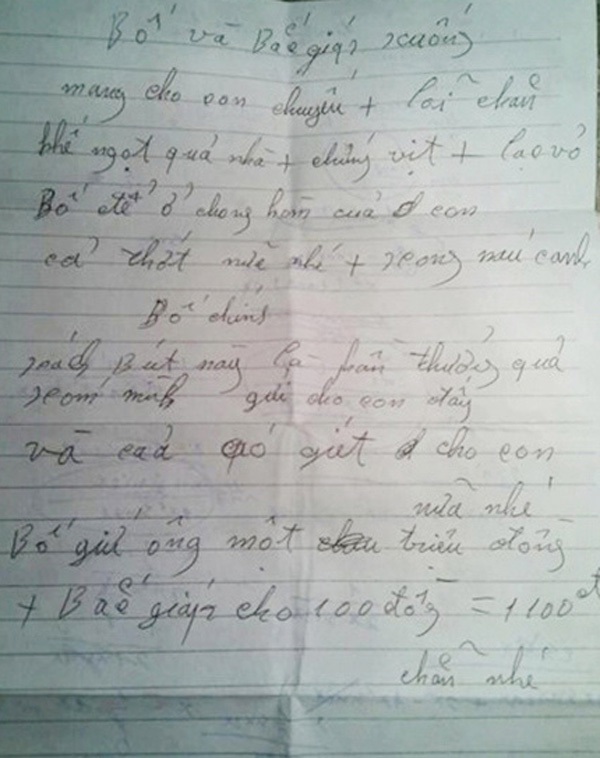 Bố và Bác giáp xuống
mang cho con chuyến + lai chẵn
khế ngọt quả nhà + chứng vịt + lạc vỏ
Bố để ở chong hòm của con
cả thớt nữa nhé + xoong nấu canh
Bố chính
xách Bút này là phần thưởng quả
xom mình gửi cho con đấy
và cả gió giét cho con
nữa nhé
Bố gửi ông một triệu đồng
+ Bác giáp cho 100 đồng = 1100đ
chẵn nhé